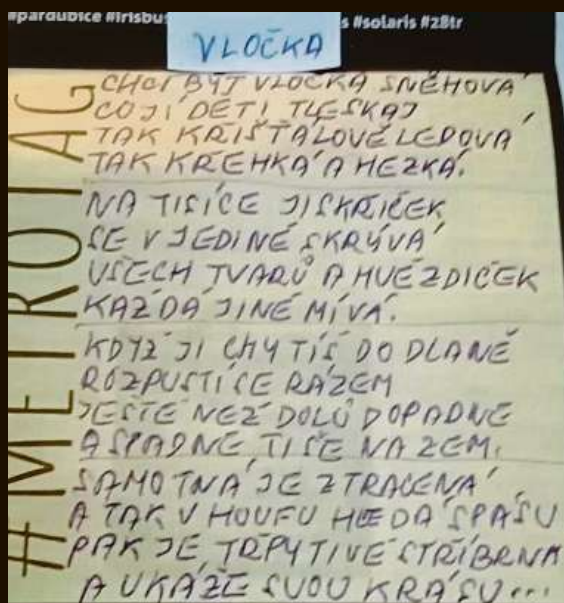 #pardubice #irisbus s #solaris #28tr
VLOČKA
#METROTAG
CHCI BÝT VLOČKA SNĚHOVÁ
CO JÍ DĚTI TLESKAJ
TAK KŘIŠŤÁLOVĚ LEDOVÁ
TAK KŘEHKÁ A HEZKÁ.
NA TISÍCE JISKŘIČEK
SE V JEDINÉ SKRÝVÁ
VŠECH TVARŮ A HVĚZDIČEK
KAŽDÁ JINÉ MÍVÁ.
KDYŽ JI CHYTÍŠ DO DLANĚ
ROZPUSTÍ SE RÁZEM
JEŠTĚ NEŽ DOLŮ DOPADNE
A SPADNE TIŠE NA ZEM.
SAMOTNÁ JE ZTRACENÁ
A TAK V HOUFU HLEDÁ SPÁSU
PAK JE TŘPYTIVĚ STŘÍBRNÁ
A UKÁŽE SVOU KRÁSU...